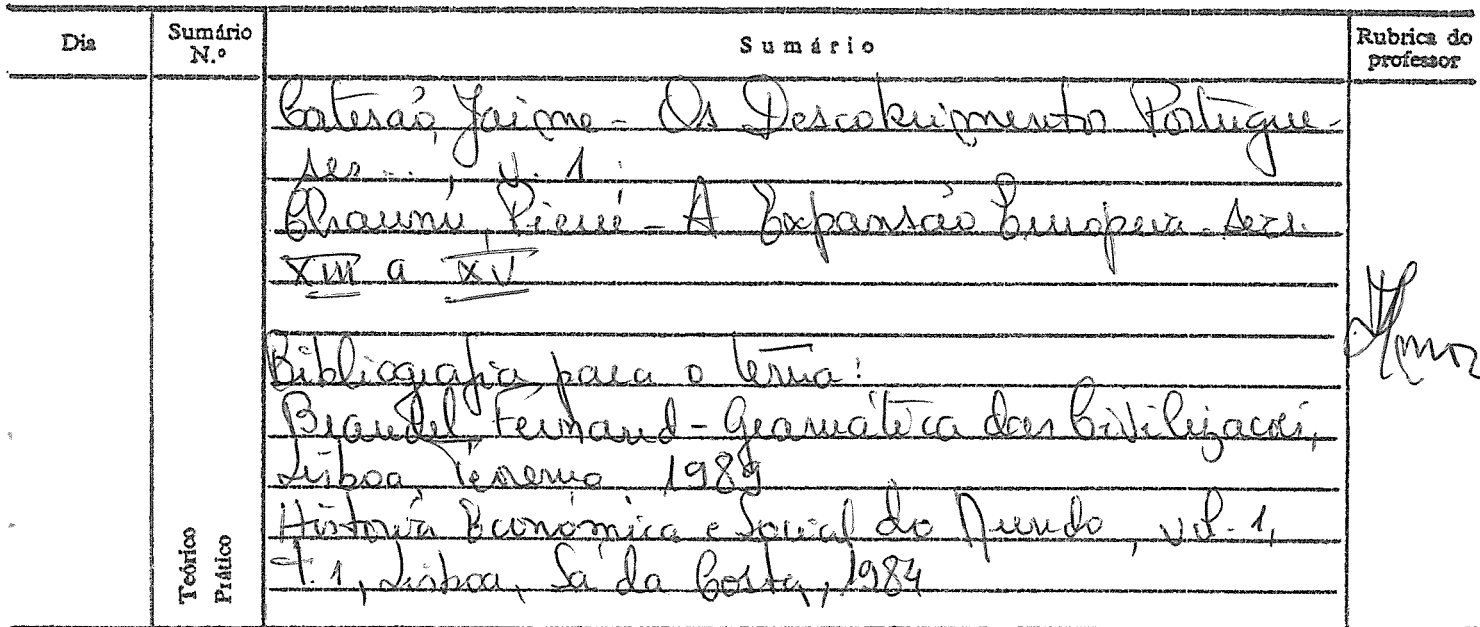 Dia
Sumário N.º
Sumário
Rubrica do professor
Cortesão, Jaime - Os Descobrimentos Portugue-
ses ..., V. 1
Chaunu, Pierre - A Expansão Europeia - Secs.
XIII a XV
Bibliografia para o tema:
Braudel, Fernand - Gramática das Civilizações,
Lisboa, Teorema, 1989
História Económica e Social do Mundo, vol. 1,
T. 1, Lisboa, Sá da Costa, 1984
Teórico
Prático